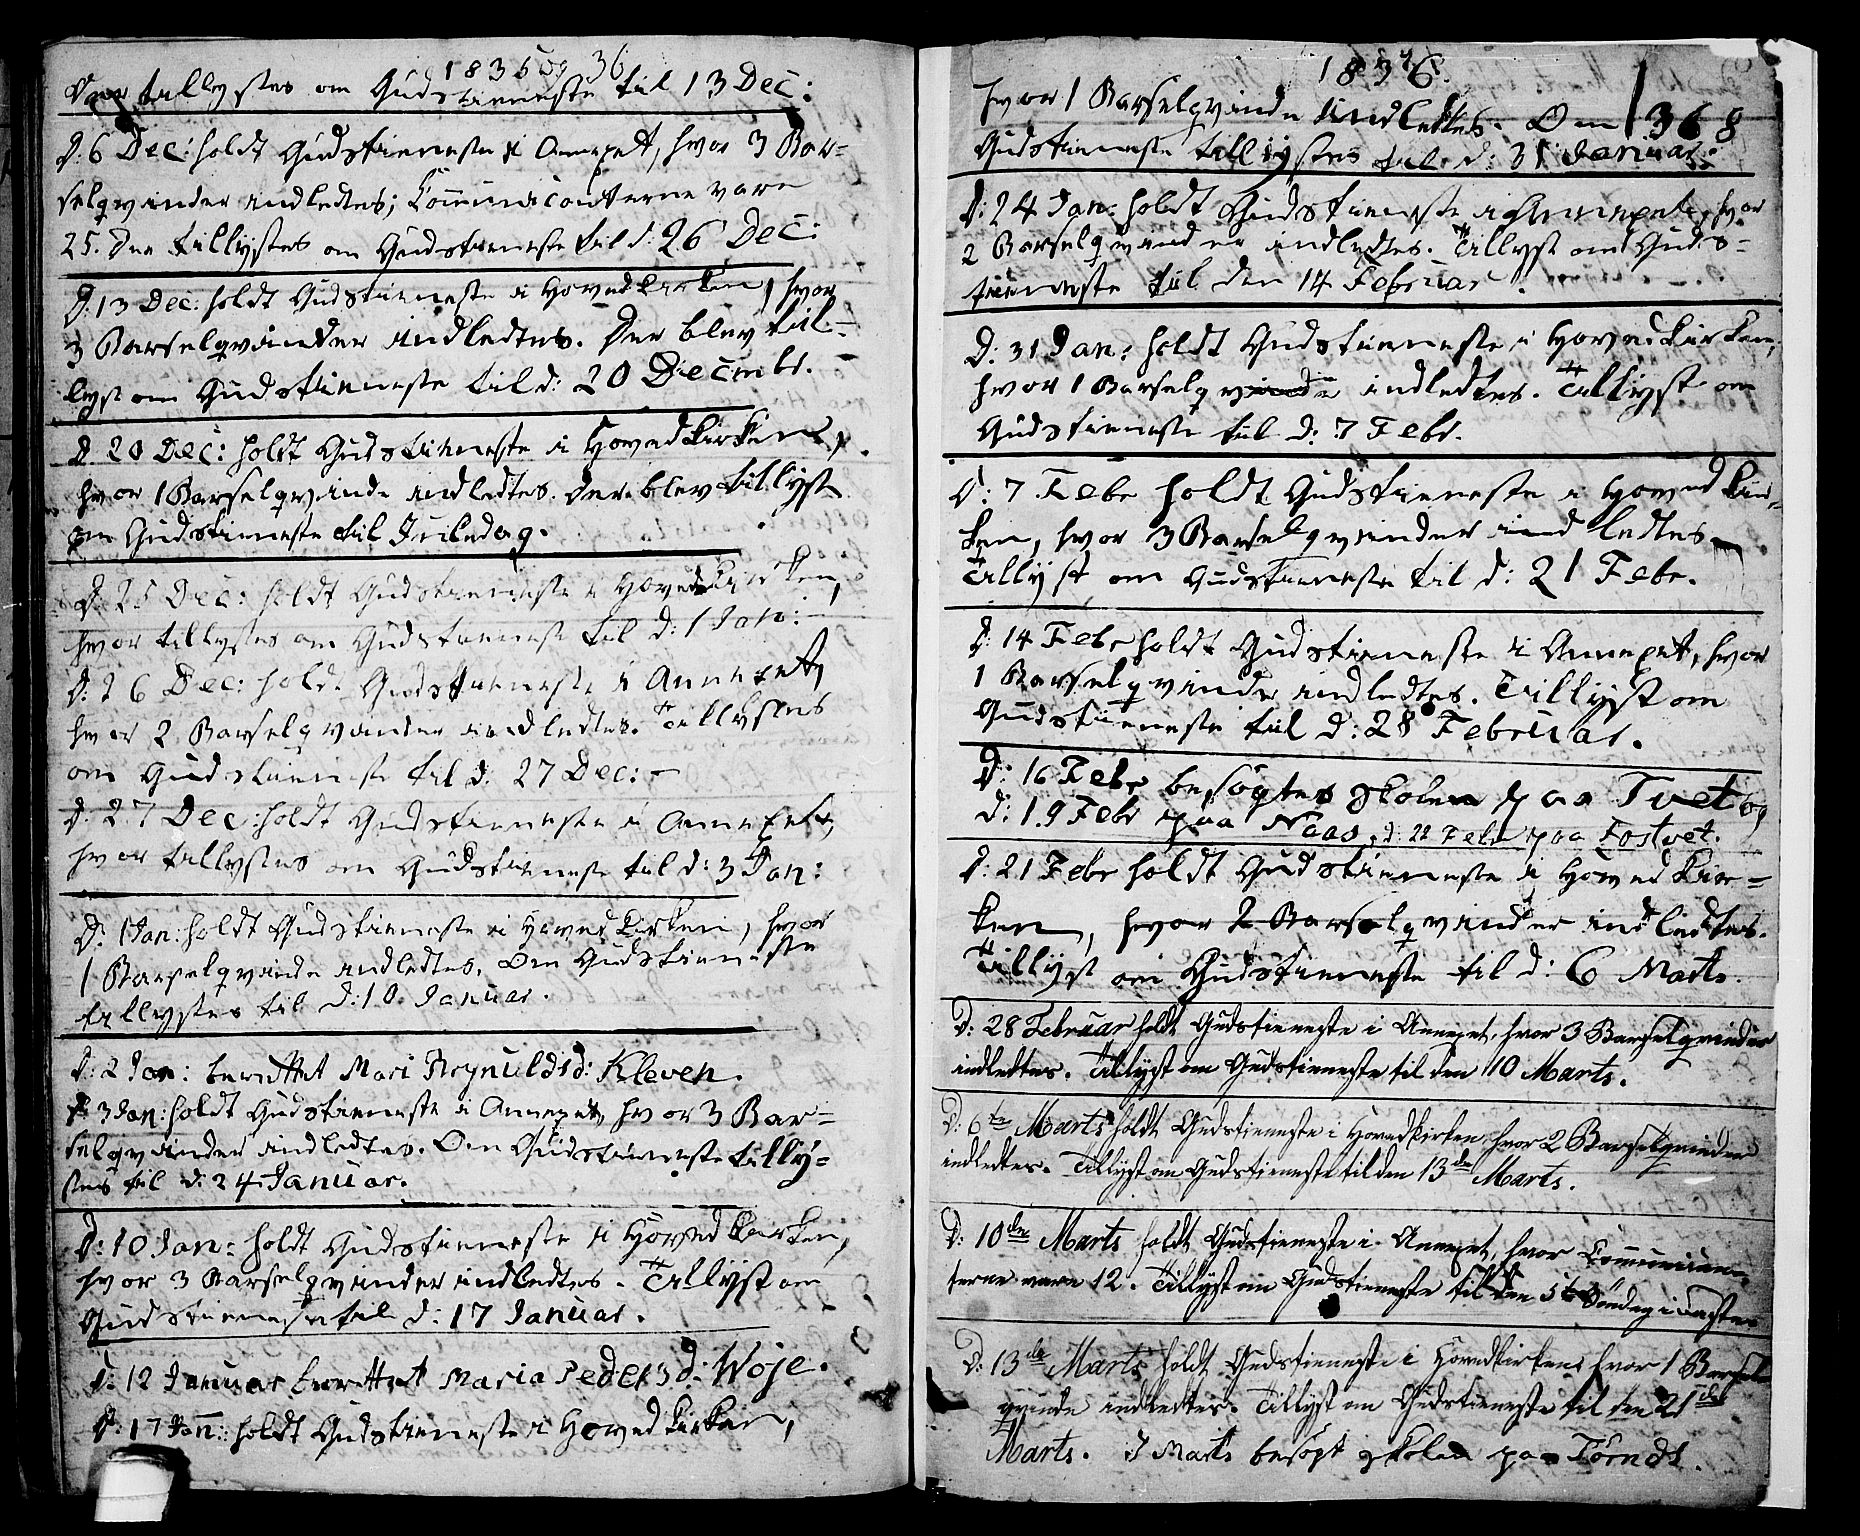 1835 og 36
Der tillystes om Gudstienneste til 13 Dec:
D: 6 Dec: holdt Gudstienneste i Annexet, hvor 3 Bar=
selqvinder indledtes; Communicanterne vare
25. Der tillystes om Gudstieneste til d: 26 Dec:
D: 13 Dec: holdt Gudstienneste i Hovedkirken, hvor
3 Barselqvinder indledtes. Der blev til=
lyst om Gudstienneste til d: 20 Decembr.
D. 20 Dec: holdt Gudstienneste i Hovedkirken,
hvor 1 Barselqvinde indledtes. Der blev tillyst
om Gudstieneste til Juledag.
D. 25 Dec: holdt Gudstienneste i Hovedkirken,
hvor tillystes om Gudstienneste til d: 1 Jan:
D: 26 Dec: holdt Gudstienneste i Annexet,
hvor 2 Barselqvinder indledtes. Tillystes
om Gudstienneste til d: 27 Dec:
D: 27 Dec: holdt Gudstienneste i Annexet,
hvor tillystes om Gudstienneste til d: 3 Jan:
D: 1 Jan: holdt Gudstienneste i Hovedkirken, hvor
1 Barselqvinde indledtes. Om Gudstienneste
tillystes til d: 10 Januar.
D: 2 Jan: berettet Mari Kleven.
D: 3 Jan: holdt Gudstienneste i Annexet, hvor 3 Bar=
selqvinder indledtes. Om Gudstienneste tilly=
stes til d: 24 Januar.
D: 10 Jan: holdt Gudstienneste i Hovedkirken,
hvor 3 Barselqvinder indledtes. Tillyst om
Gudstienneste til d: 17 Januar.
D: 12 Januar berettet Maria Pedersd: Woje.
D: 17 Jan: holdt Gudstienneste i Hovedkirken,
1836.
hvor 1 Barselqvinde indledtes. Om
368
Gudstienneste tillystes til d: 31 Januar.
D: 24 Jan: holdt Gudstienneste i Annexet, hvor
2 Barselqvinder indledtes. Tillyst om Guds=
tienneste til den 14 Februar.
D: 31 Jan: holdt Gudstienneste i Hovedkirken,
hvor 1 Barselqvinde indledtes. Tillyst om
Gudstienneste til d: 7 Febr.
D: 7 Febr holdt Gudstienneste i Hovedkir=
ken, hvor 3 Barselqvinder indledtes.
Tillyst om Gudstienneste til d: 21 Febr.
D: 14 Febr holdt Gudstienneste i Annexet, hvor
1 Barselqvinde indledtes. Tillyst om
Gudstienneste til d: 28 Februar.
D: 16 Febr besøgtes Skolen paa Tvet og
D: 19 Febr paa Naas, d: 22 Febr paa Fostvet.
D: 21 Febr holdt Gudstienneste i Hovedkir=
ken, hvor 2 Barselqvinder indledtes.
Tillyst om Gudstienneste til d: 6 Marts.
D: 28 Februar holdt Gudstieneste i Annexet, hvor 3 Barselqvinder
indledtes. Tillyst om Gudstieneste til den 10 Marts.
D: 6te Marts holdt Gudstieneste i Hovedkirken, hvor 2 Barselqvinder
indledtes. Tillyst om Gudstieneste til den 13de Marts.
D: 10de Marts holdt Gudstieneste i Annexet, hvor Communican=
terne vare 12. Tillyst om Gudstieneste til den 5te Søndag i Fasten
D: 13de Marts holdt Gudstieneste i Hovedkirken, hvor 1 Barsel
qvinde indledtes. Tillyst om Gudstieneste til den 21de
Marts. 7 Marts besøgt Skolen paa